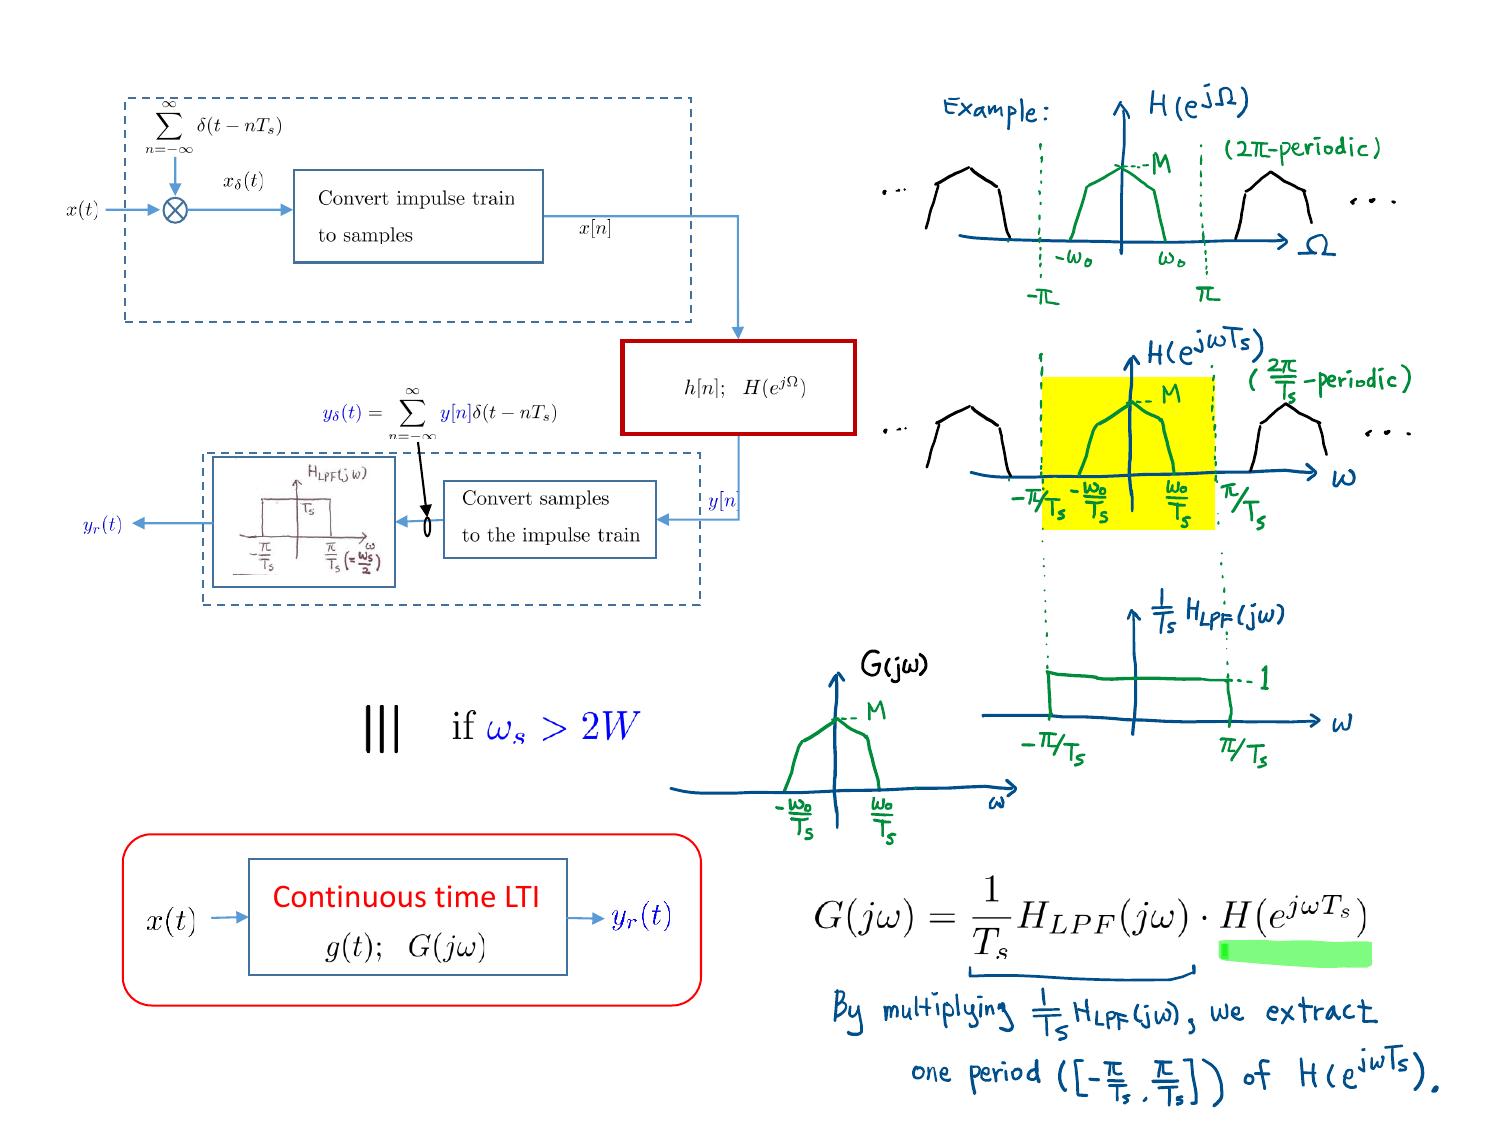 ∞
∑ δ(t − nTₛ)
n=−∞
x_δ(t)
x(t)
Convert impulse train
to samples
x[n]
h[n]; H(e^{jΩ})
∞
y_δ(t) = ∑ y[n]δ(t − nTₛ)
n=−∞
H_{LPF}(jω)
Tₛ
ω
-π/Tₛ π/Tₛ (=ωₛ/2)
Convert samples
to the impulse train
y[n]
y_r(t)
||| if ωₛ > 2W
x(t)
Continuous time LTI
g(t); G(jω)
y_r(t)
Example: H(e^{jΩ})
(2π-periodic)
M
... ...
-ω₀ ω₀ Ω
-π π
H(e^{jωTₛ})
(2π/Tₛ-periodic)
M
... ...
-π/Tₛ -ω₀/Tₛ ω₀/Tₛ π/Tₛ ω
1/Tₛ H_{LPF}(jω)
1
ω
-π/Tₛ π/Tₛ
G(jω)
M
-ω₀/Tₛ ω₀/Tₛ ω
G(jω) = 1/Tₛ H_{LPF}(jω) · H(e^{jωTₛ})
By multiplying 1/Tₛ H_{LPF}(jω), we extract
one period ([-π/Tₛ, π/Tₛ]) of H(e^{jωTₛ}).